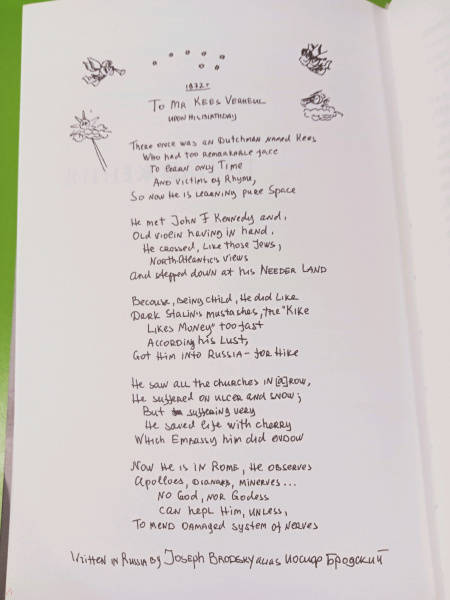 1972 г
To Mr Kees Verheul
upon his birthday
There once was an Dutchman named Kees
Who had too remarkable face
To learn only Time
And victims of Rhyme,
So now he is learning pure Space
He met John F Kennedy and,
Old violin having in hand,
He crossed, like those Jews,
North-Atlantic's views
And stepped down at his NEEDER LAND
Because, being child, he did like
Dark Stalin's mustaches, the "Kike
Likes Money" too fast
According his Lust,
Got him into Russia – for Hike
He saw all the churches in [a] row,
He suffered on ulcer and snow;
But suffering very
He saved life with cherry
Which Embassy him did endow
Now he is in Rome, he observes
Apolloes, Dianaes, Minerves...
No God, nor Godess
Can hepl him, unless,
To mend damaged system of nerves
Written in Russia by Joseph Brodsky alias Иосиф Бродский